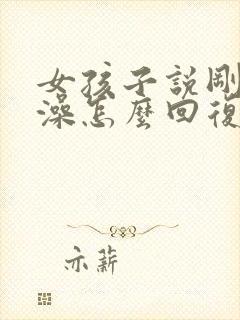 女孩子説剛
澡怎麼回復
亦薪